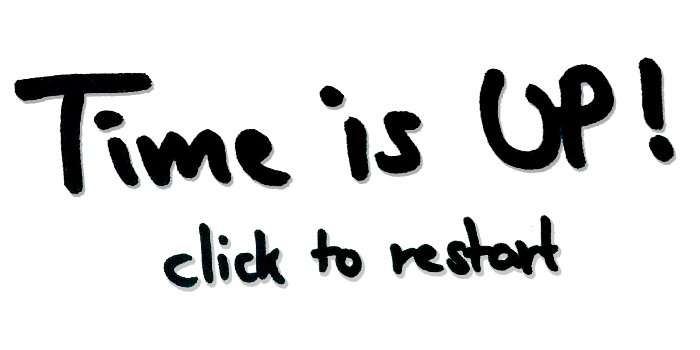 Time is UP!
click to restart